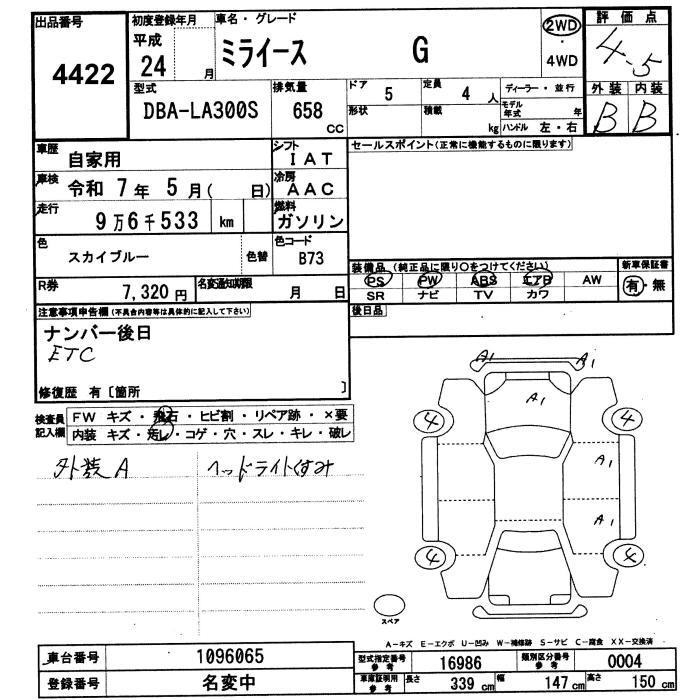 出品番号 4422
初度登録年月 平成 24 月
車名・グレード ミライース G
2WD ・ 4WD
評価点 4.5
型式 DBA-LA300S
排気量 658 cc
ドア 5
定員 4 人
形状
積載 kg
ディーラー・並行
モデル年式 年
ハンドル 左・右
外装 B
内装 B
車歴 自家用
シフト IAT
車検 令和 7年 5月( 日)
冷房 AAC
走行 9万6千533 km
燃料 ガソリン
色 スカイブルー
色替
色コード B73
R券 7,320円
名変通知期限 月 日
セールスポイント(正常に機能するものに限ります)
装備品 (純正品に限り〇をつけてください)
PS PW ABS エアB AW
SR ナビ TV カワ
新車保証書 有・無
後日品
注意事項申告欄(不具合内容等は具体的に記入して下さい)
ナンバー後日
ETC
修復歴 有〔箇所 〕
検査員記入欄
FW キズ・飛石・ヒビ割・リペア跡・×要
内装 キズ・汚レ・コゲ・穴・スレ・キレ・破レ
外装A
ヘッドライトくすみ
A1 A1
A1
4 4
A1
A1
4 4
スペア
A-キズ E-エクボ U-凹み W-補修跡 S-サビ C-腐食 XX-交換済
車台番号 1096065
登録番号 名変中
型式指定番号 参考 16986
類別区分番号 参考 0004
車庫証明用 参考 長さ 339 cm 幅 147 cm 高さ 150 cm